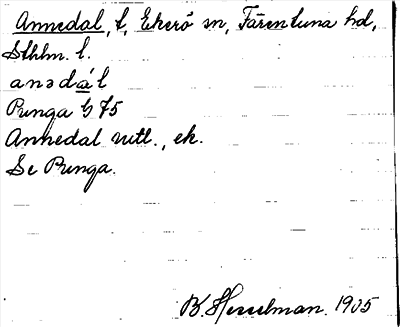 Annedal, t, Ekerö sn, Färentuna hd,
Sthlm. l.
anədál
Punga G 75
Annedal rutl., ek.
Se Punga.
B. Hesselman. 1905